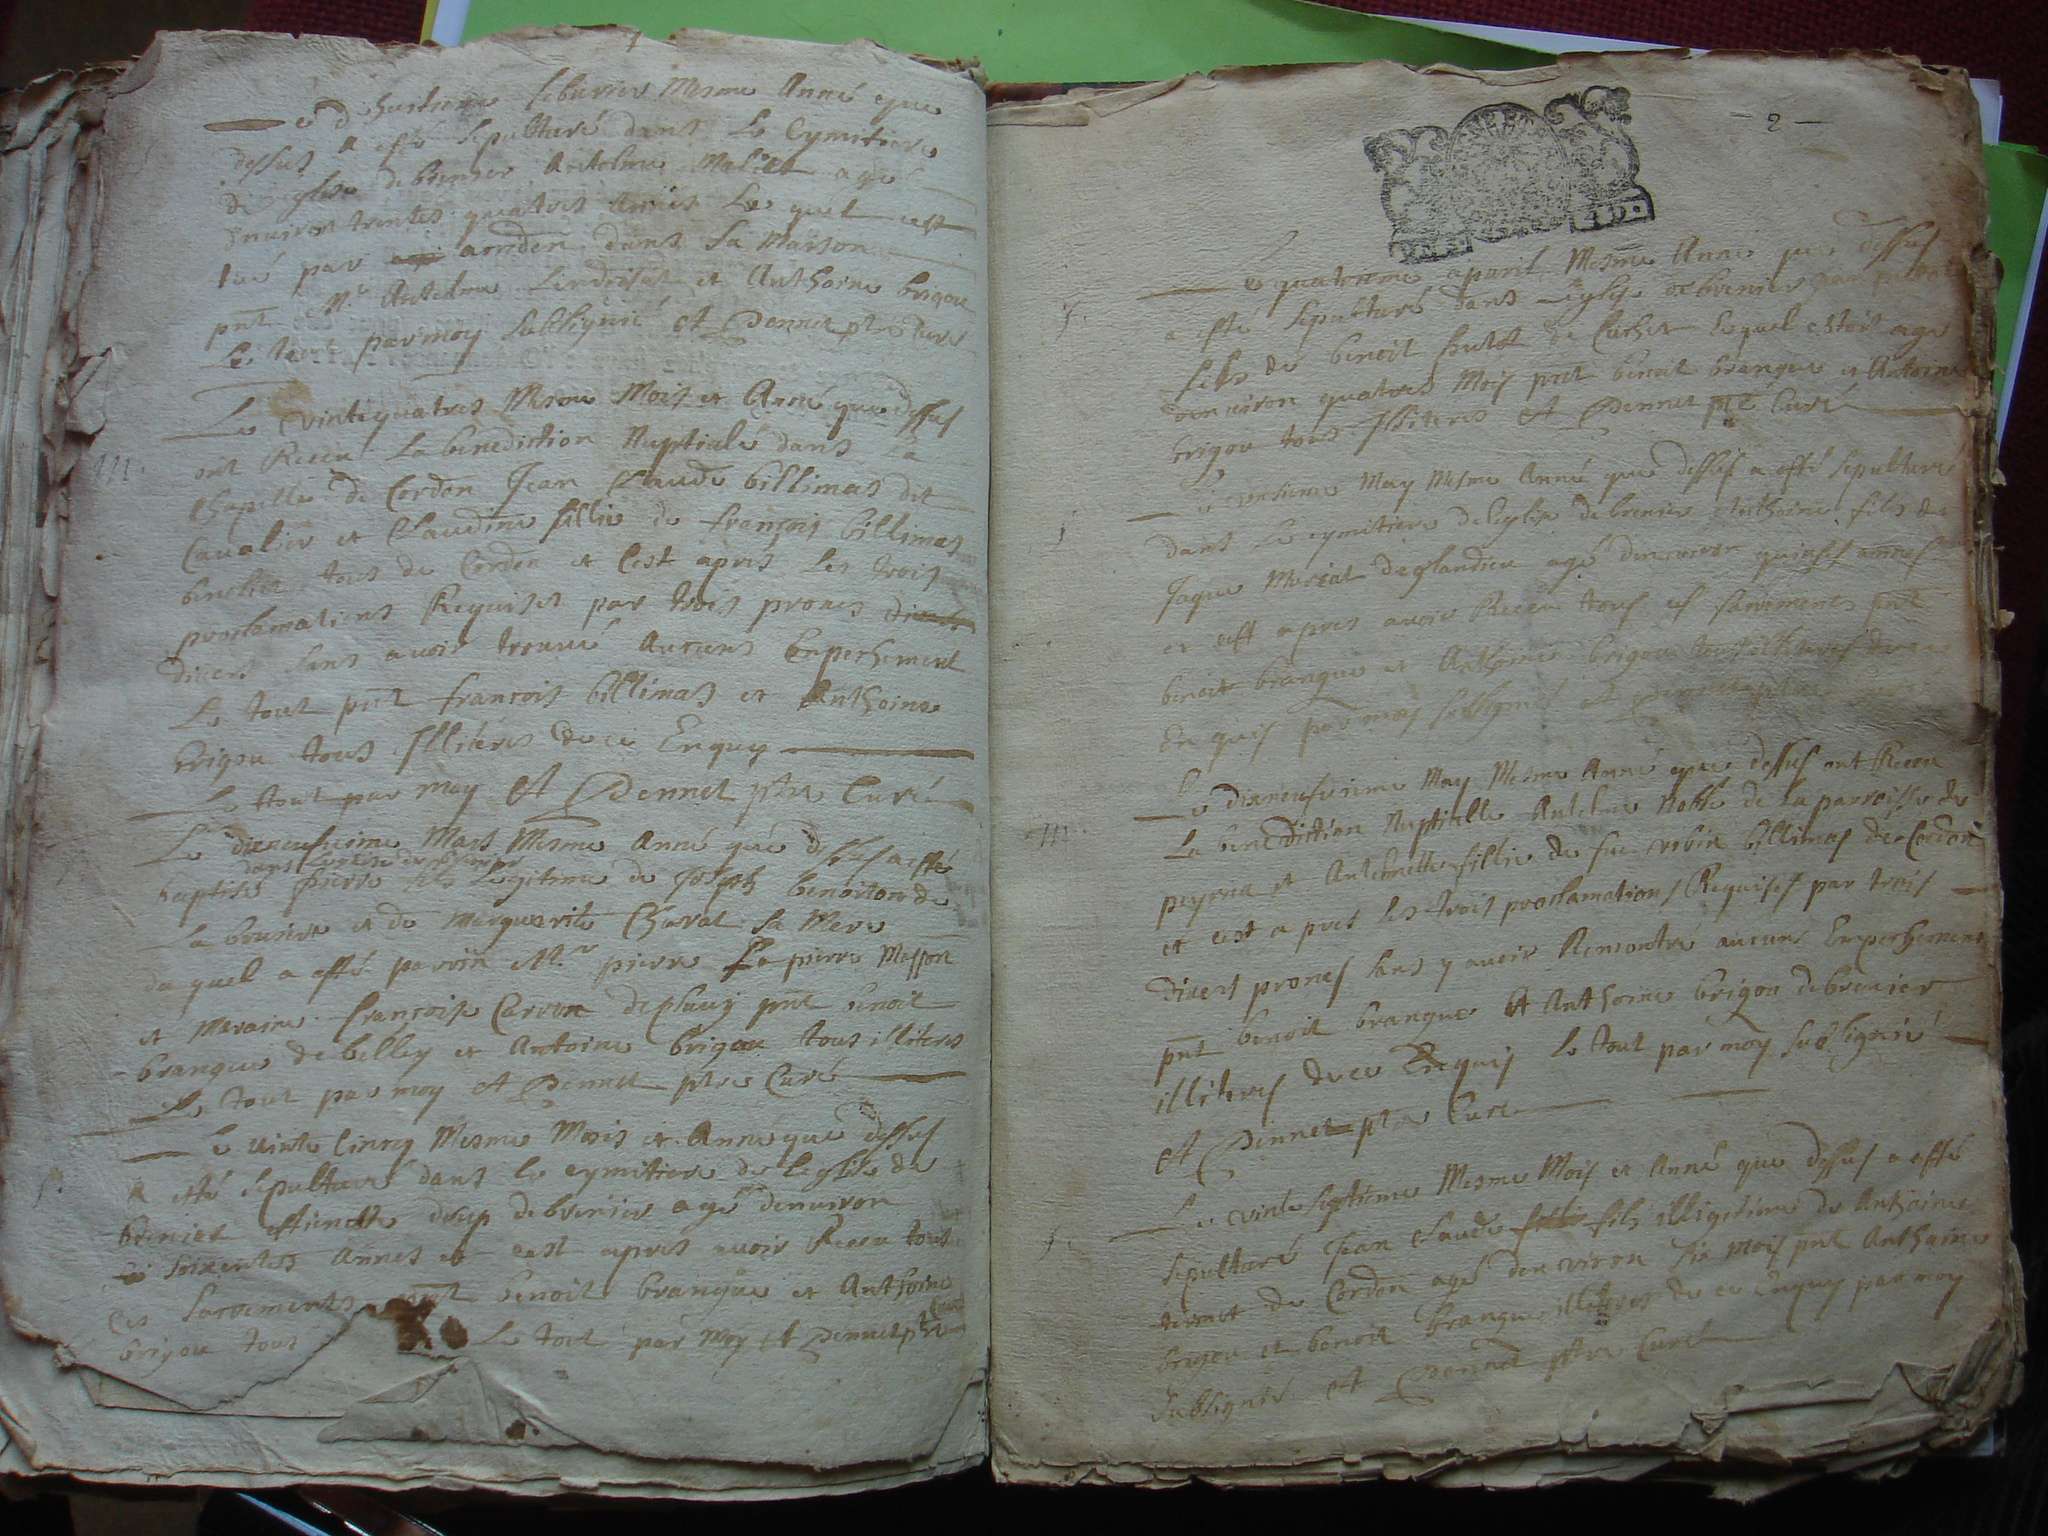 Le dhuictieme febvrier Mesme Anné que
dessus a esté sepulturé dans Le Cymitiere
de leglise de brenier Antelme Maliet agé
denviron trentes quatres Annés Le quel est
tué par dans Sa Maison
pnt Mr Antelme et Anthoine brigou
Le tout par moy subsigné et Pennet ptre Curé
Le vintequatres Mesme Mois et Anné que dessus
M.
ont Receu La benediction Nuptiale dans La
Chapelle de Cordon Jean Claude billimas dit
Cavalier et Claudine fillie de françois billimas
tous de Cordon et Cest apres Les trois
proclamations Requises par trois prones
divers sans avoir trouvé Aucuns Enpechement
Le tout pnt françois billimas et Anthoine
brigou tous Illiteres de ce Enquy
Le tout par moy et Pennet ptre Curé
Le dixneufvieme Mars Mesme Anné que dessus a esté
dans Leglise de brenier
baptisé pierre fils Legitime de Joseph benoiton de
La bruiere et de Marguerite Charat sa Mere
du quel a esté parrin Mr pierre La pierre Masson
et Maraine françoise Carron de pluvy pnt benoit
brangue de belley et Antoine brigou tous illiteres
Le tout par moy et Pennet ptre Curé
Le vinte Cinq Mesme Mois et Anné que dessus
S.
a esté sepulturé dans Le cymitiere de Leglise de
brenier estienette drup de brenier agé denviron
soixentes Annés et cest apres avoir Receu tous
Ces Sacrements pnt benoit brangue et Anthoine
brigou tous Le tout par Moy et Pennet ptre
Curé
- 2 -
Le quatrieme apvril Mesme Anné que dessus
S.
a esté sepulturé dans Leglise de brenier
fils de benoit de Cuchet Lequel estoit agé
denviron quatres Mois pnt benoit brangue et Antoine
brigou tous Illiteres et Pennet ptre Curé
Le onsieme May Mesme Anné que dessus a esté sepulturé
S
dans Le cymitiere de leglise de brenier Anthoine fils de
Jaque Merlat de glandieu agé denviron quinses annés
et cest apres avoir Receu tous ces sacrements pnt
benoit brangue et Anthoine brigou tous illiteres de ce
Enquis par moy subsigné et Pennet ptre
Le dixneufvieme May Mesme Anné que dessus ont Receu
M.
La benediction Nuptialle Antelme Noblé de La parroisse de
peyrieu et Antelmette fillie de feu billimas de Cordon
et cest apres Les trois proclamations Requises par trois
divers prones sans y avoir Rencontré aucuns Enpechement
pnt benoit brangue et Anthoine brigou de brenier
illiteres de ce Enquis Le tout par moy subsigné
et Pennet ptre Curé
Le vinte septieme Mesme Mois et Anné que dessus a esté
S.
sepulturé Jean Claude fils illigitime de Anthoine
de Cordon agé denviron six Mois pnt Anthoine
brigou et benoit brangue illiteres de ce Enquy par moy
subsigné et Pennet ptre Curé